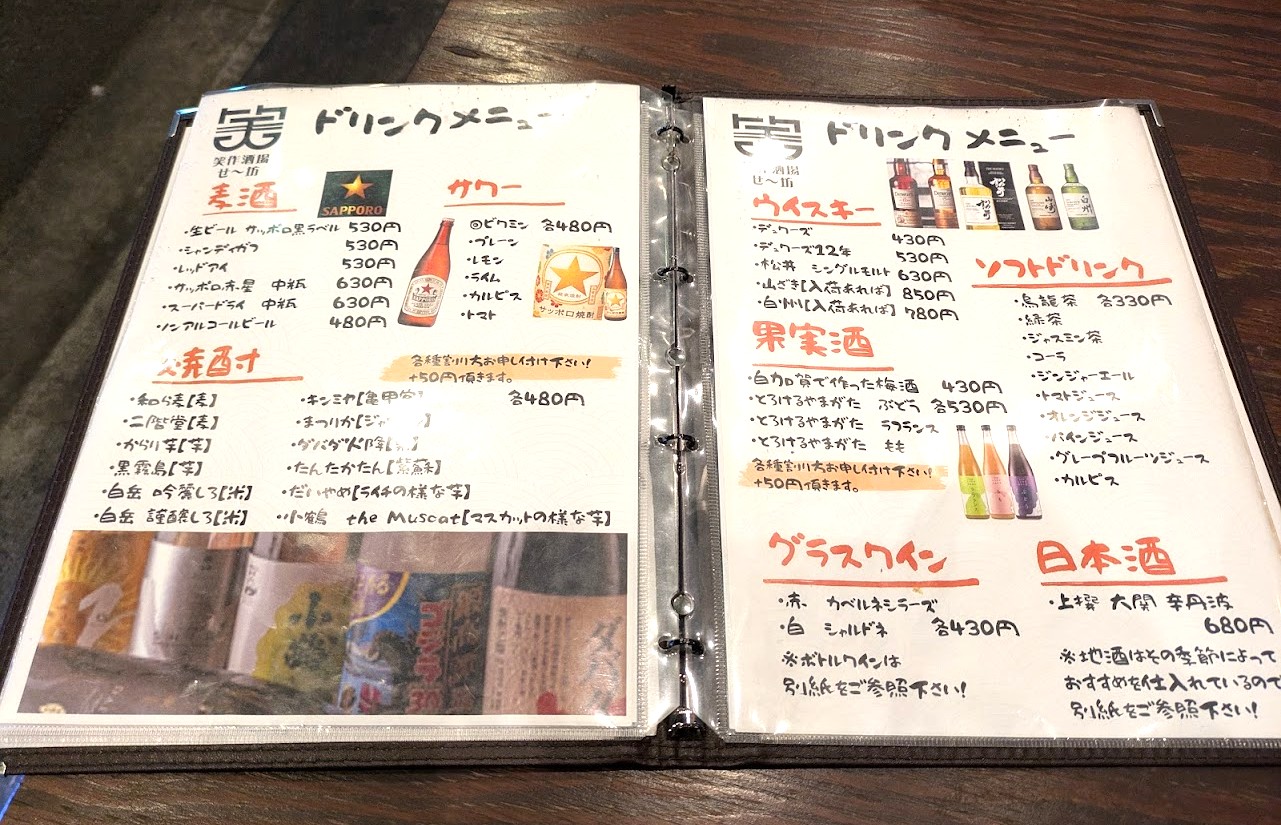 ドリンクメニュー
笑作酒場
せ〜坊
麦酒
SAPPORO
・生ビール サッポロ黒ラベル 530円
・シャンディガフ 530円
・レッドアイ 530円
・サッポロ赤星 中瓶 630円
・スーパードライ 中瓶 630円
ノンアルコールビール 480円
サワー
◎ビタミン 各480円
・プレーン
・レモン
・ライム
・カルピス
・トマト
サッポロ焼酎
焼酎
各種割り方お申し付け下さい!
+50円頂きます。
・和ら麦【麦】
・二階堂【麦】
・からり芋【芋】
・黒霧島【芋】
・白岳 吟麗しろ【米】
・白岳 謹醸しろ【米】
・キンミヤ【亀甲宮】 各480円
・まつりか【ジャ
・ダバダ火振【
・たんたかたん【紫蘇】
・だいやめ【ライチの様な芋】
・小鶴 the Muscat【マスカットの様な芋】
ドリンクメニュー
作酒場
せ〜坊
ウイスキー
・デュワーズ 430円
・デュワーズ12年 530円
・松井 シングルモルト 630円
・山ざき【入荷あれば】 850円
・白州【入荷あれば】 780円
果実酒
・白加賀で作った梅酒 430円
・とろけるやまがた ぶどう 各530円
・とろけるやまがた ラフランス
・とろけるやまがた もも
各種割り方お申し付け下さい!
+50円頂きます。
ソフトドリンク
・烏龍茶 各330円
・緑茶
・ジャスミン茶
・コーラ
・ジンジャーエール
・トマトジュース
・オレンジジュース
・パインジュース
・グレープフルーツジュース
・カルピス
グラスワイン
・赤 カベルネシラーズ
・白 シャルドネ 各430円
※ボトルワインは
別紙をご参照下さい!
日本酒
・上撰 大関 辛丹波
680円
※地酒はその季節によって
おすすめを仕入れているので
別紙をご参照下さい!